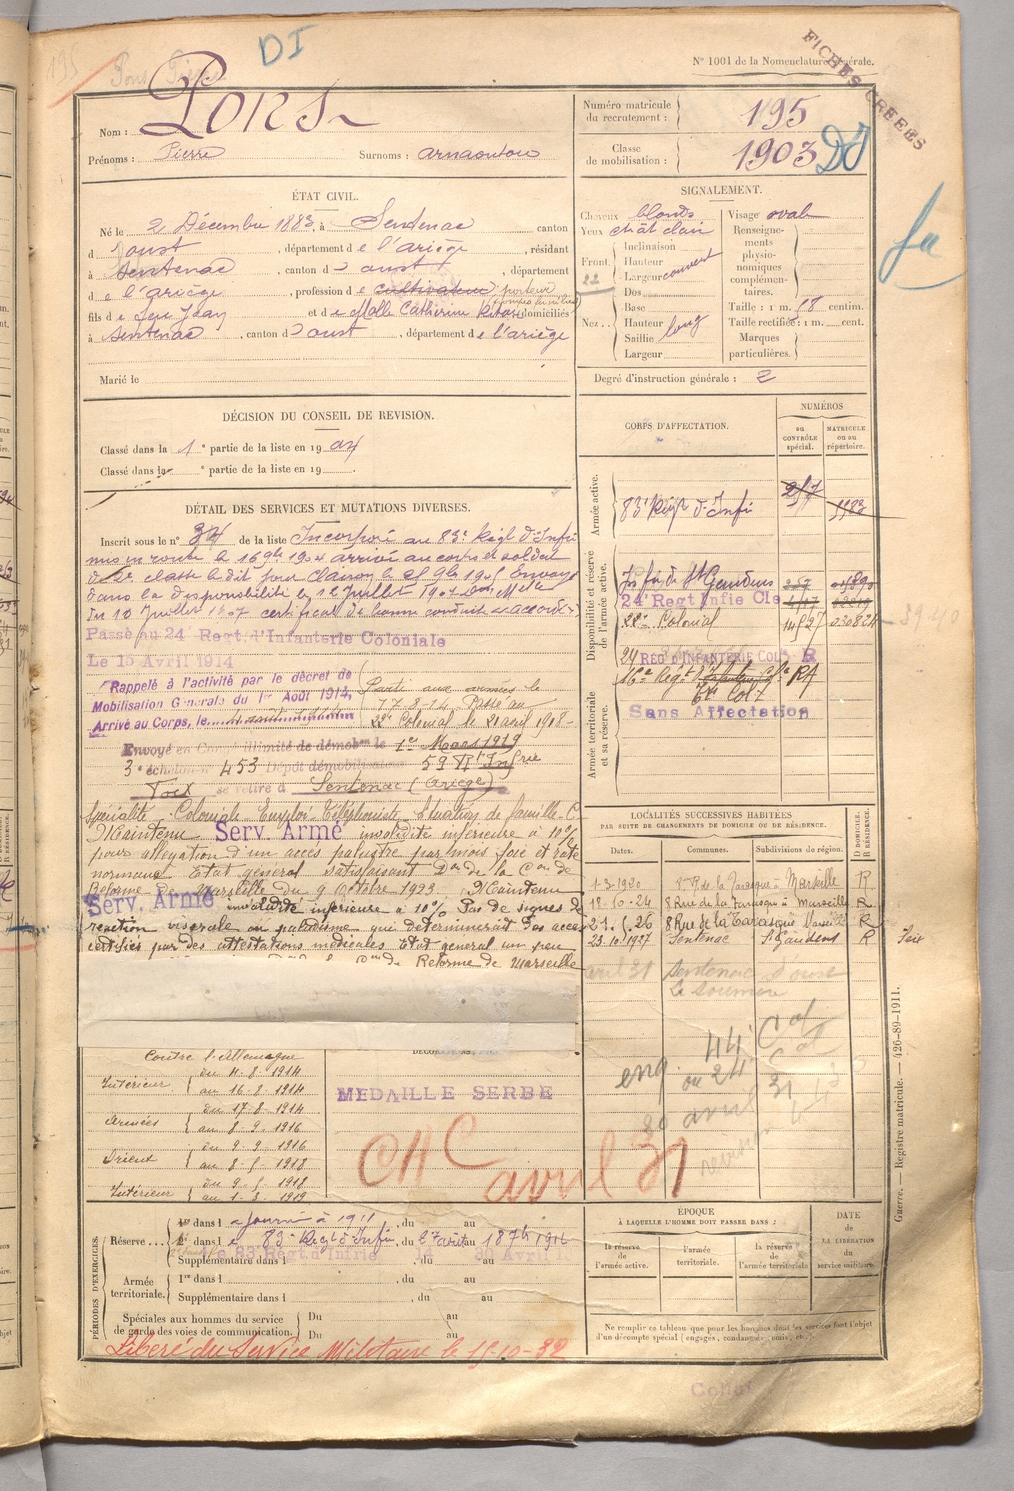 195
Pons Pierre
DI
N° 1001 de la Nomenclature générale.
FICHES CREEES
Nom : Pons
Prénoms : Pierre Surnoms : arnaoutou
Numéro matricule du recrutement : 195
Classe de mobilisation : 1903 DI
fa
ÉTAT CIVIL.
Né le 2 Décembre 1883, à Sentenac canton
d'oust, département de l'ariège, résidant
à Sentenac, canton d'oust, département
de l'ariège, profession de cultivateur porteur
fils de feu Jean et de Catherine domiciliés
à Sentenac, canton d'oust, département de l'ariège
Marié le
SIGNALEMENT.
Cheveux blonds Visage ovale
Yeux châtclair Renseignements physionomiques complémentaires.
Front. Inclinaison
Hauteur
Largeur couvert
22
Nez. Dos
Base Taille : 1 m. 58 centim.
Hauteur Taille rectifiée : 1 m. cent.
Saillie long Marques particulières.
Largeur
Degré d'instruction générale : 2
DÉCISION DU CONSEIL DE REVISION.
Classé dans la 1e partie de la liste en 1904
Classé dans la e partie de la liste en 19
DÉTAIL DES SERVICES ET MUTATIONS DIVERSES.
Inscrit sous le n° 34 de la liste Incorporé au 83e Régt d'Infie
mis en route le 16 9bre 1904 arrivé au corps et soldat
de 2e classe le dit jour Clairon le 25 9bre 1905 Envoyé
dans la disponibilité le 12 Juillet 1907
du 10 Juillet 1907 certificat de bonne conduite accordé
Passé au 24e Regt. d'Infanterie Coloniale
Le 15 Avril 1914
Rappelé à l'activité par le décret de
Mobilisation Générale du 1er Août 1914,
Arrivé au Corps, le
Parti aux armées le
17-8-14 Passé au
22e Colonial le 21 avril 1918
Envoyé en Congé illimité de démobon le 1er Mars 1919
3e échelon n° 453 Dépôt démobilisateur 59 Rt Infrie
Foix se retire à Sentenac (Ariège)
Spécialité : Coloniale Emploi Téléphoniste Situation de famille C
Maintenu Serv. Armé invalidité inférieure à 10%
pour allégation d'un accès palustre par mois foie et rate
normaux Etat général satisfaisant Don de la Con de
Réforme de Marseille du 9 Octobre 1923. Maintenu
Serv. Armé invalidité inférieure à 10% Pas de signes de
réaction viscérale au paludisme que détermineraient des accès
certifiés par des attestations médicales Etat général un peu
Réforme de Marseille
CORPS D'AFFECTATION.
NUMÉROS
au CONTRÔLE spécial.
MATRICULE ou au répertoire.
Armée active.
83e Régt d'Infie 257
Disponibilité et réserve de l'armée active.
Inf de St Gaudens 257
24e Regt Infie Cle 417
22e Colonial 030824
24 REG D'INFANTERIE COLE R
Armée territoriale et sa réserve.
Sans Affectation
LOCALITÉS SUCCESSIVES HABITÉES
PAR SUITE DE CHANGEMENTS DE DOMICILE OU DE RÉSIDENCE.
Dates. Communes. Subdivisions de région. D DOMICILE. R RÉSIDENCE.
1-3-1920 8 r. de la Tarasque à Marseille R
18-10-24 8 Rue de la Tarasque à Marseille R
21.6.26 8 Rue de la Tarasque Marseille R
23.10.1927 Sentenac St Gaudens R Foix
avril 31 Sentenac d'oust
eng. 44 Cal
ou 24e Cal
30 avril 31
Contre l'Allemagne
Intérieur du 11-8-1914
au 16-8-1914
Armées du 17-8-1914
au 8-9-1916
Orient du 9-9-1916
au 8-5-1918
Intérieur du 9-5-1918
au 1-3-1919
MEDAILLE SERBE
CAC avril 31
PÉRIODES D'EXERCICES.
Réserve 1re dans l ajourné à 1911, du au
2e dans le 83e Régt d'Infie, du
le 83e Régt d'Infrie 14 30 Avril
Supplémentaire dans l, du au
Armée territoriale. 1re dans l, du au
Supplémentaire dans l, du au
Spéciales aux hommes du service de garde des voies de communication. Du au
Du au
Libéré du Service Militaire le 15-10-32
ÉPOQUE
À LAQUELLE L'HOMME DOIT PASSER DANS :
la réserve de l'armée active.
l'armée territoriale.
la réserve de l'armée territoriale
DATE de LA LIBÉRATION du service militaire.
Ne remplir ce tableau que pour les hommes dont les services font l'objet
d'un décompte spécial (engagés, condamnés, omis, etc.)
Guerre. — Registre matricule. — 426-89-1911.